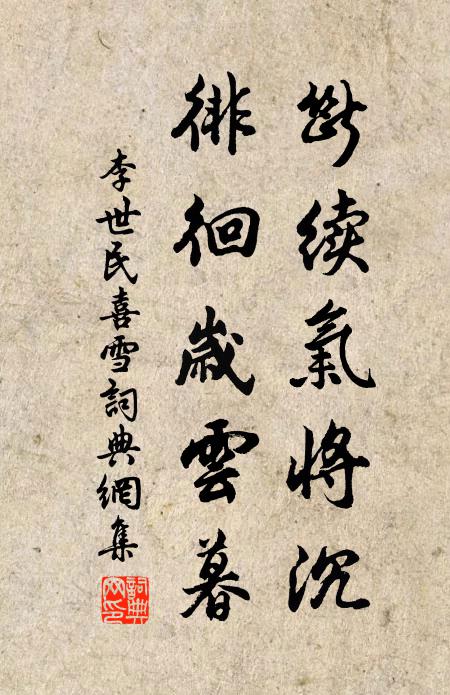 斷續氣將沉
徘徊歲雲暮
李世民喜雪詞典網集
詞典網印